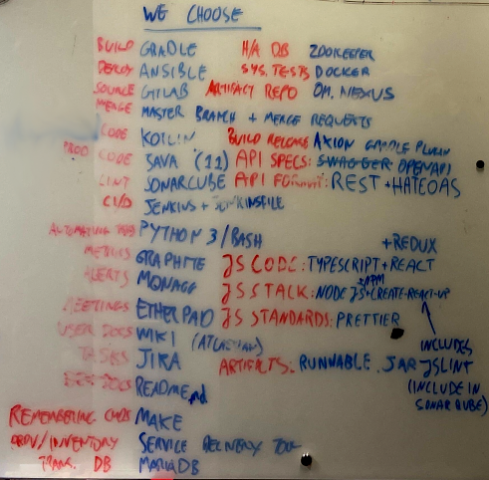 WE CHOOSE
BUILD GRADLE H/A DB ZOOKEEPER
DEPLOY ANSIBLE SYS. TESTS DOCKER
SOURCE GITLAB ARTIFACT REPO OM. NEXUS
MERGE MASTER BRANCH + MERGE REQUESTS
CODE KOTLIN BUILD RELEASE AXION GRADLE PLUGIN
PROD CODE JAVA (11) API SPECS: SWAGGER OPENAPI
LINT SONARCUBE API FORMAT: REST + HATEOAS
CI/D JENKINS + JENKINSFILE
PYTHON 3/BASH
+REDUX
METRICS GRAPHITE JS CODE: TYPESCRIPT + REACT
ALERTS JS STACK: NODE JS + CREATE-REACT-APP
MEETINGS ETHERPAD JS STANDARDS: PRETTIER
USER DOCS WIKI (ATLASSIAN) INCLUDES
TASKS JIRA ARTIFACTS: RUNNABLE .JAR JSLINT
DEV DOCS README.md (INCLUDE IN
SONAR QUBE)
REMEMBERING CMDS MAKE
PROV/INVENTORY SERVICE DELIVERY TOOL
TRANS. DB MARIADB